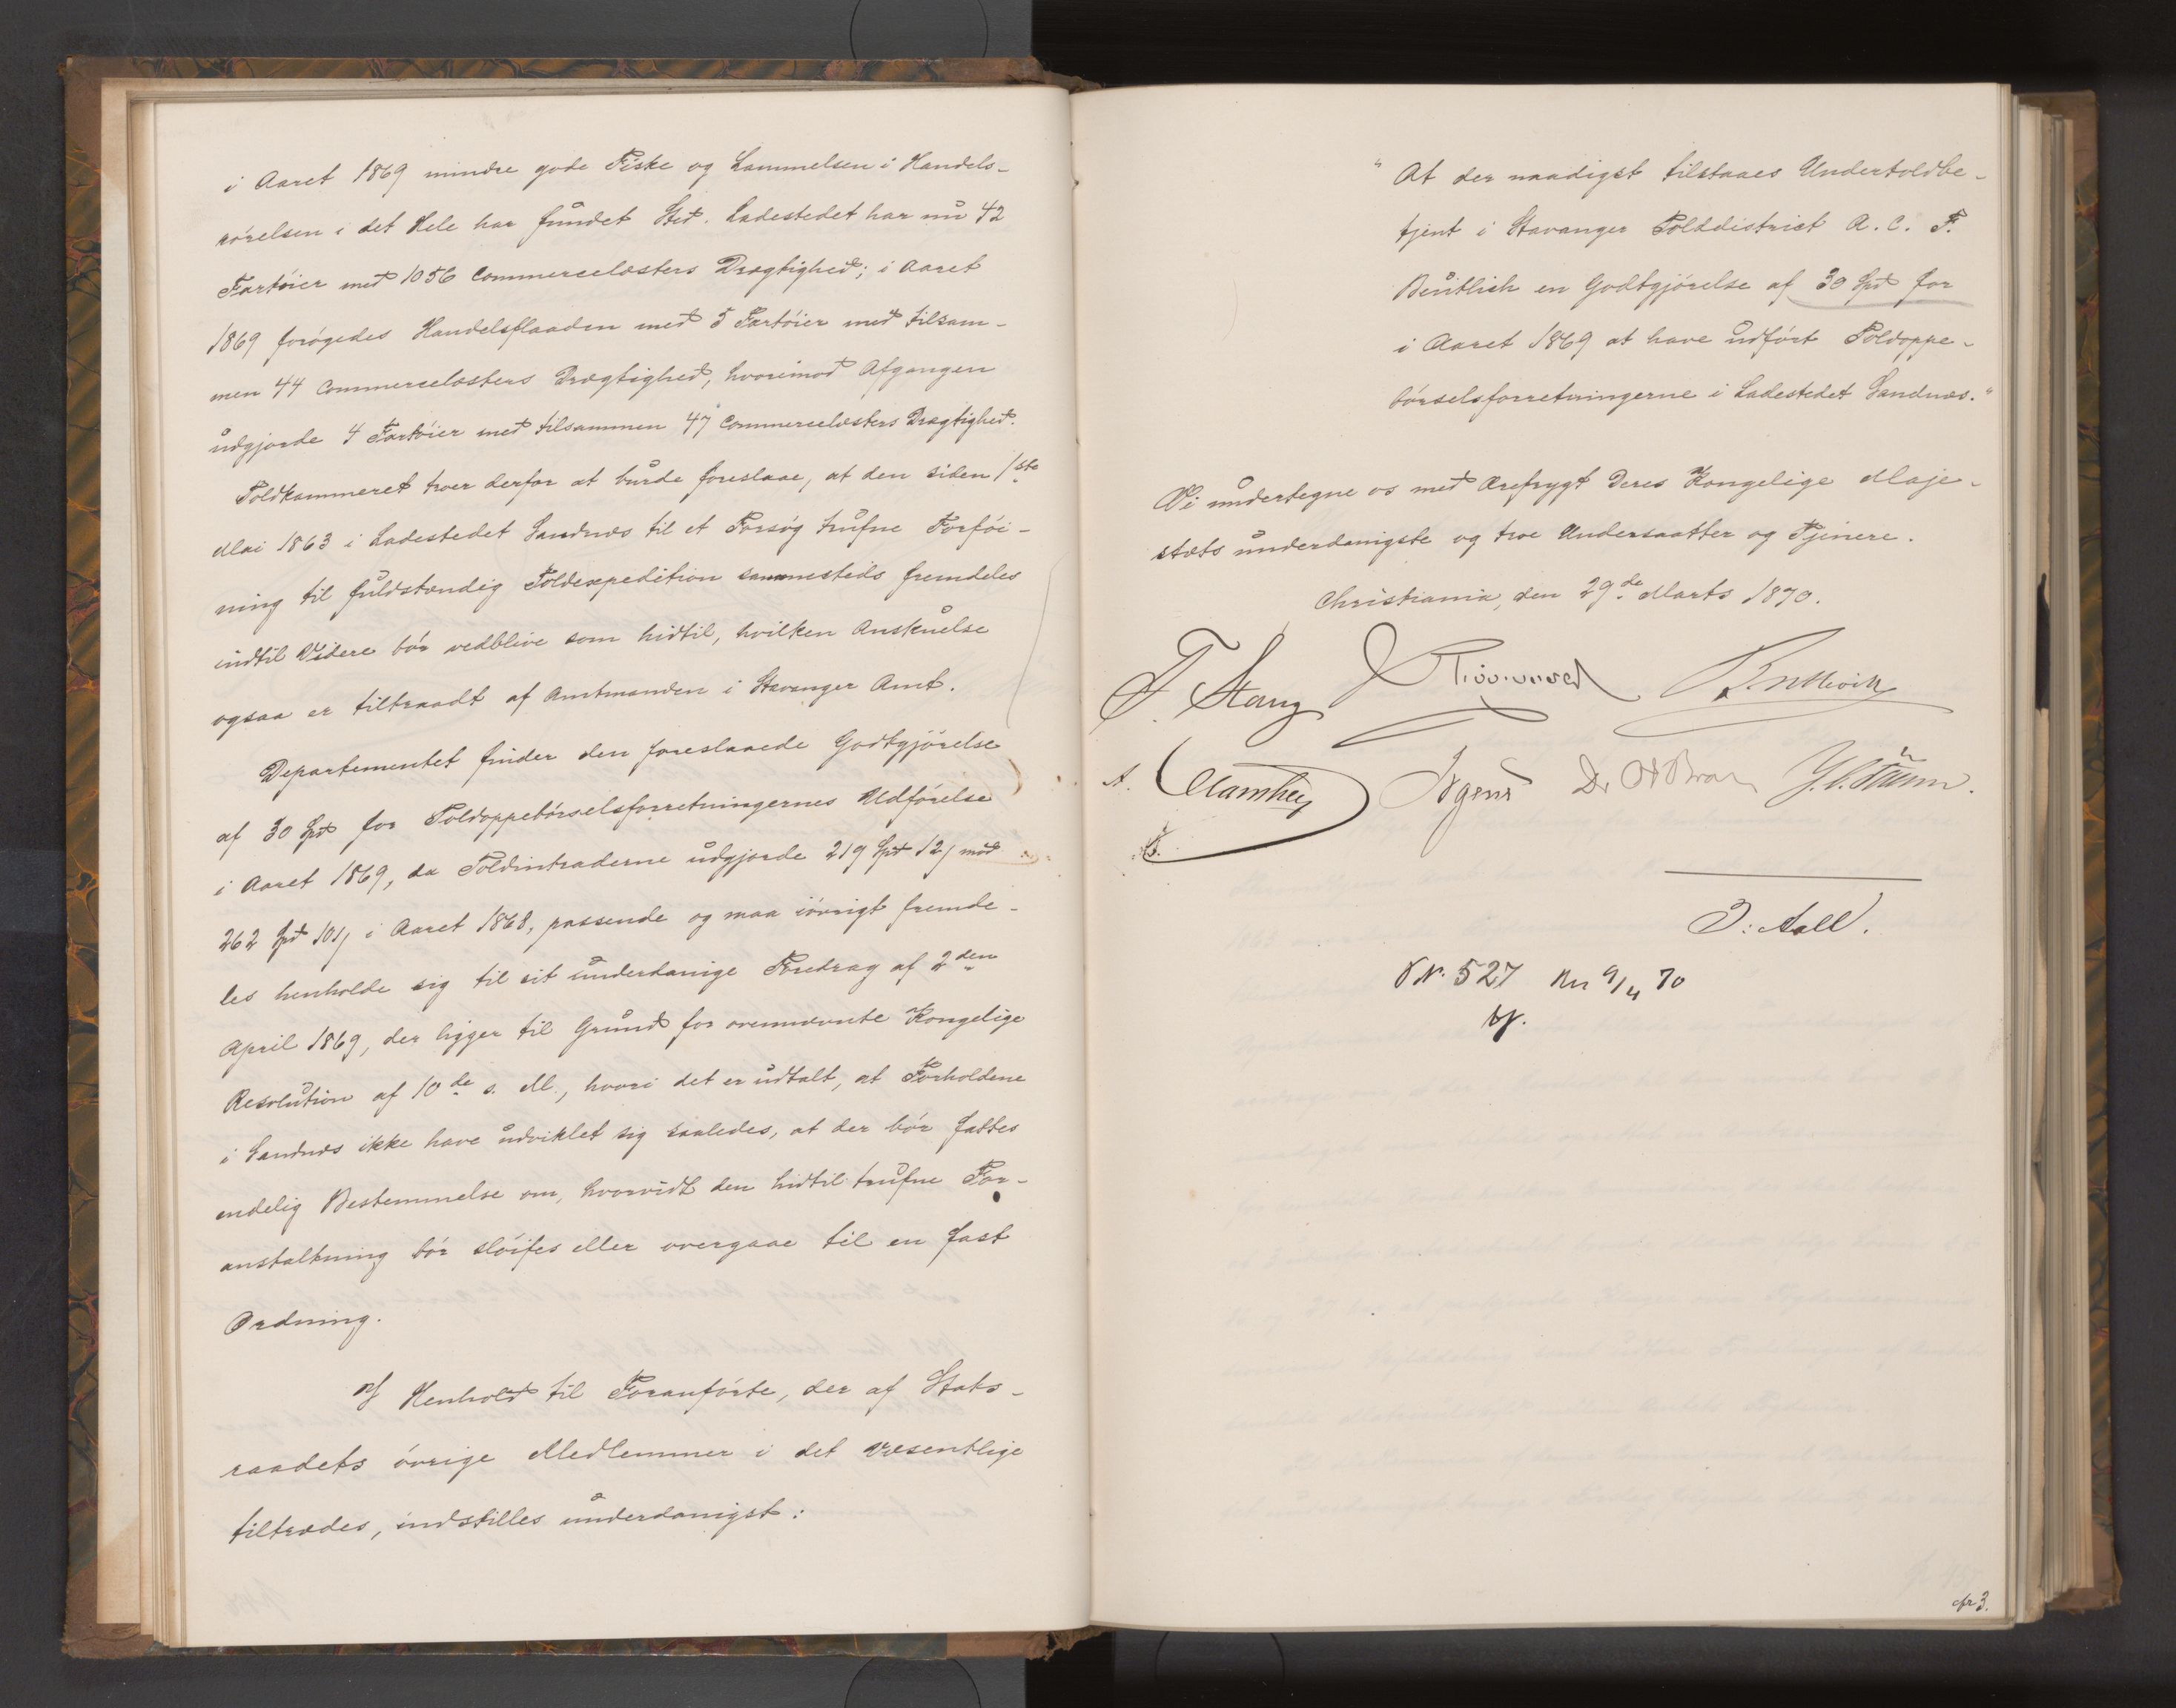 i Aaret 1869 mindre gode Fiske og Lammelsen i Handels-
rørelsen i det Hele har fundet Sted. Ladestedet har nu 42
Fartøier med 1056 Commercelæsters Drægtighed; i Aaret
1869 forøgedes Handelsflaaden med 5 Fartøier med tilsam-
men 44 Commercelæsters Drægtighed, hvorimod Afgangen
udgjorde 4 Fartøier med tilsammen 47 Commercelæsters Drægtighed.
Toldkammeret troer derfor at burde foreslaae, at den siden 1ste
Mai 1863 i Ladestedet Sandnæs til et Forsøg trufne Forføi-
ning til fuldstændig Toldexpedition sammesteds fremdeles
indtil Videre bør vedblive som hidtil, hvilken Anskuelse
ogsaa er tiltraadt af Amtmanden i Stavanger Amt.
Departementet finder den foreslaaede Godtgjørelse
af 30 Spd for Toldoppebørselsforretningernes Udførelse
i Aaret 1869, da Toldintraderne udgjorde 219 Spd 12 ꞵ mod
262 Spd 101 ꞵ i Aaret 1868, passende og maa iøvrigt fremde-
les henholde sig til sit underdanige Foredrag af 2den
April 1869, der ligger til Grund for ovennævnte Kongelige
Resolution af 10de s. M., hvori det er udtalt, at Forholdene
i Sandnæs ikke have udviklet sig saaledes, at der bør fattes
endelig Bestemmelse om, hvorvidt den hidtil trufne For-
anstaltning bør sløifes eller overgaae til en fast
Ordning.
I Henhold til Foranførte, der af Stats-
raadets øvrige Medlemmer i det Væsentlige
tiltrædes, indstilles underdanigst:
"At der naadigst tilstaaes Undertoldbe-
tjent i Stavanger Tolddistrict A. C. F.
Beutlich en Godtgjørelse af 30 Spd for
i Aaret 1869 at have udført Toldoppe-
børselsforretningerne i Ladestedet Sandnæs."
Vi undertegne os med Ærefrygt Deres Kongelige Maje-
stæts underdanigste og troe Undersaatter og Tjenere.
Christiania, den 29de Marts 1870.
F. Stang
Irgens
D. J. Aall.
N. 527 9/4 70
No 3.